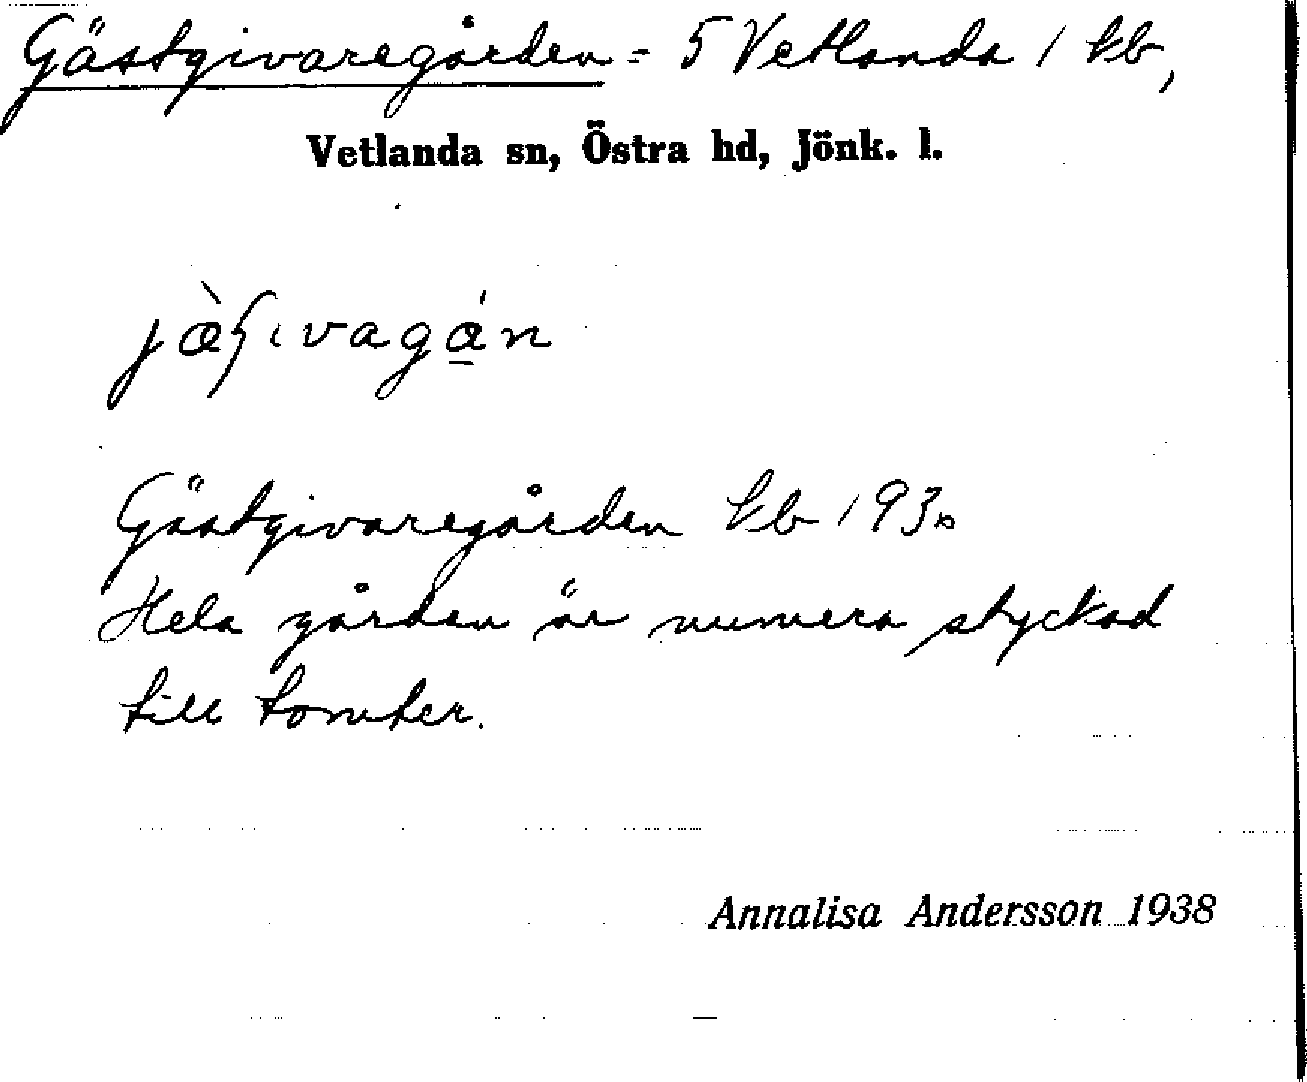 Gästgivaregården = 5 Vetlanda 1 kb,
Vetlanda sn, Östra hd, Jönk. l.
Gästgivaregården kb 1930
Hela gården är numera styckad
till tomter.
Annalisa Andersson 1938